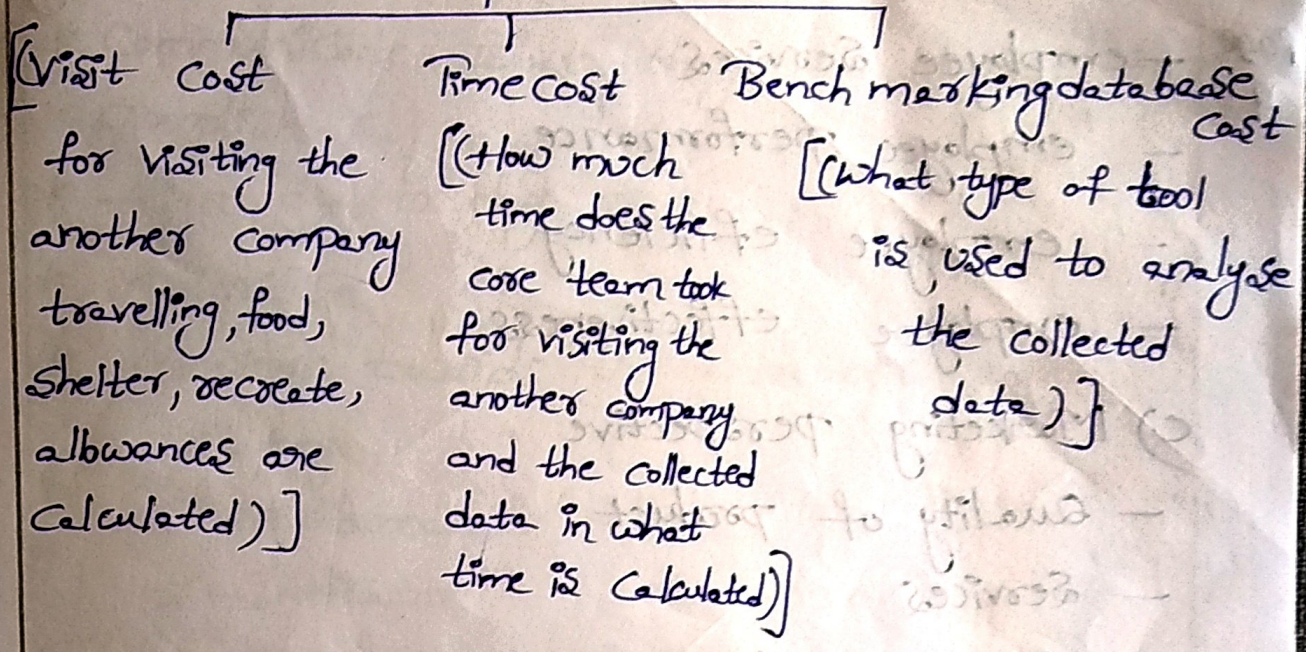 [(Visit cost
for visiting the
another company
travelling, food,
shelter, recreate,
allowances are
calculated)]
Time cost
[(How much
time does the
core team took
for visiting the
another company
and the collected
data in what
time is calculated)]
Bench marking database
cost
[(what type of tool
is used to analyse
the collected
data)}